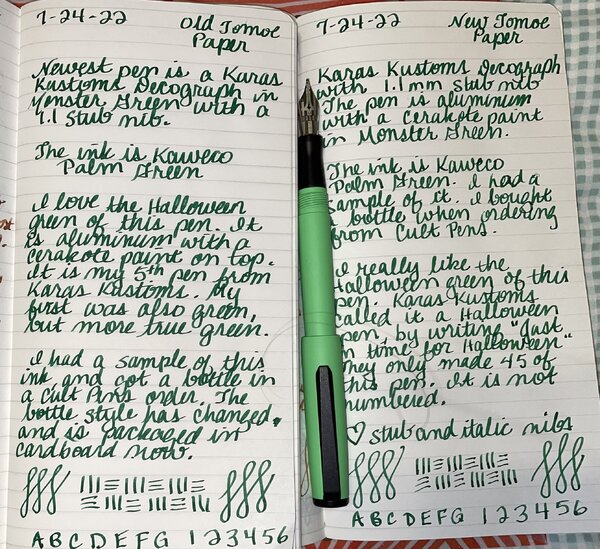 7-24-22
Old Tomoe
Paper
Newest pen is a Karas
Kustoms Decograph in
Monster Green with a
1.1 stub nib.
The ink is Kaweco
Palm Green
I love the Halloween
green of this pen. It
is aluminum with a
cerakote paint on top.
It is my 5th pen from
Karas Kustoms. My
first was also green,
but more true green.
I had a sample of this
ink and got a bottle in
a Cult Pens order. The
bottle style has changed,
and is packaged in
cardboard now.
A B C D E F G 1 2 3 4 5 6
7-24-22
New Tomoe
Paper
Karas Kustoms Decograph
with 1.1mm stub nib
The pen is aluminum
with a cerakote paint
in Monster Green.
The ink is Kaweco
Palm Green. I had a
sample of it. I bought
a bottle when ordering
from Cult Pens.
I really like the
Halloween green of this
pen. Karas Kustoms
called it a Halloween
pen, by writing "Just
in time for Halloween"
They only made 45 of
this pen. It is not
numbered.
♡ stub and italic nibs
A B C D E F G 1 2 3 4 5 6